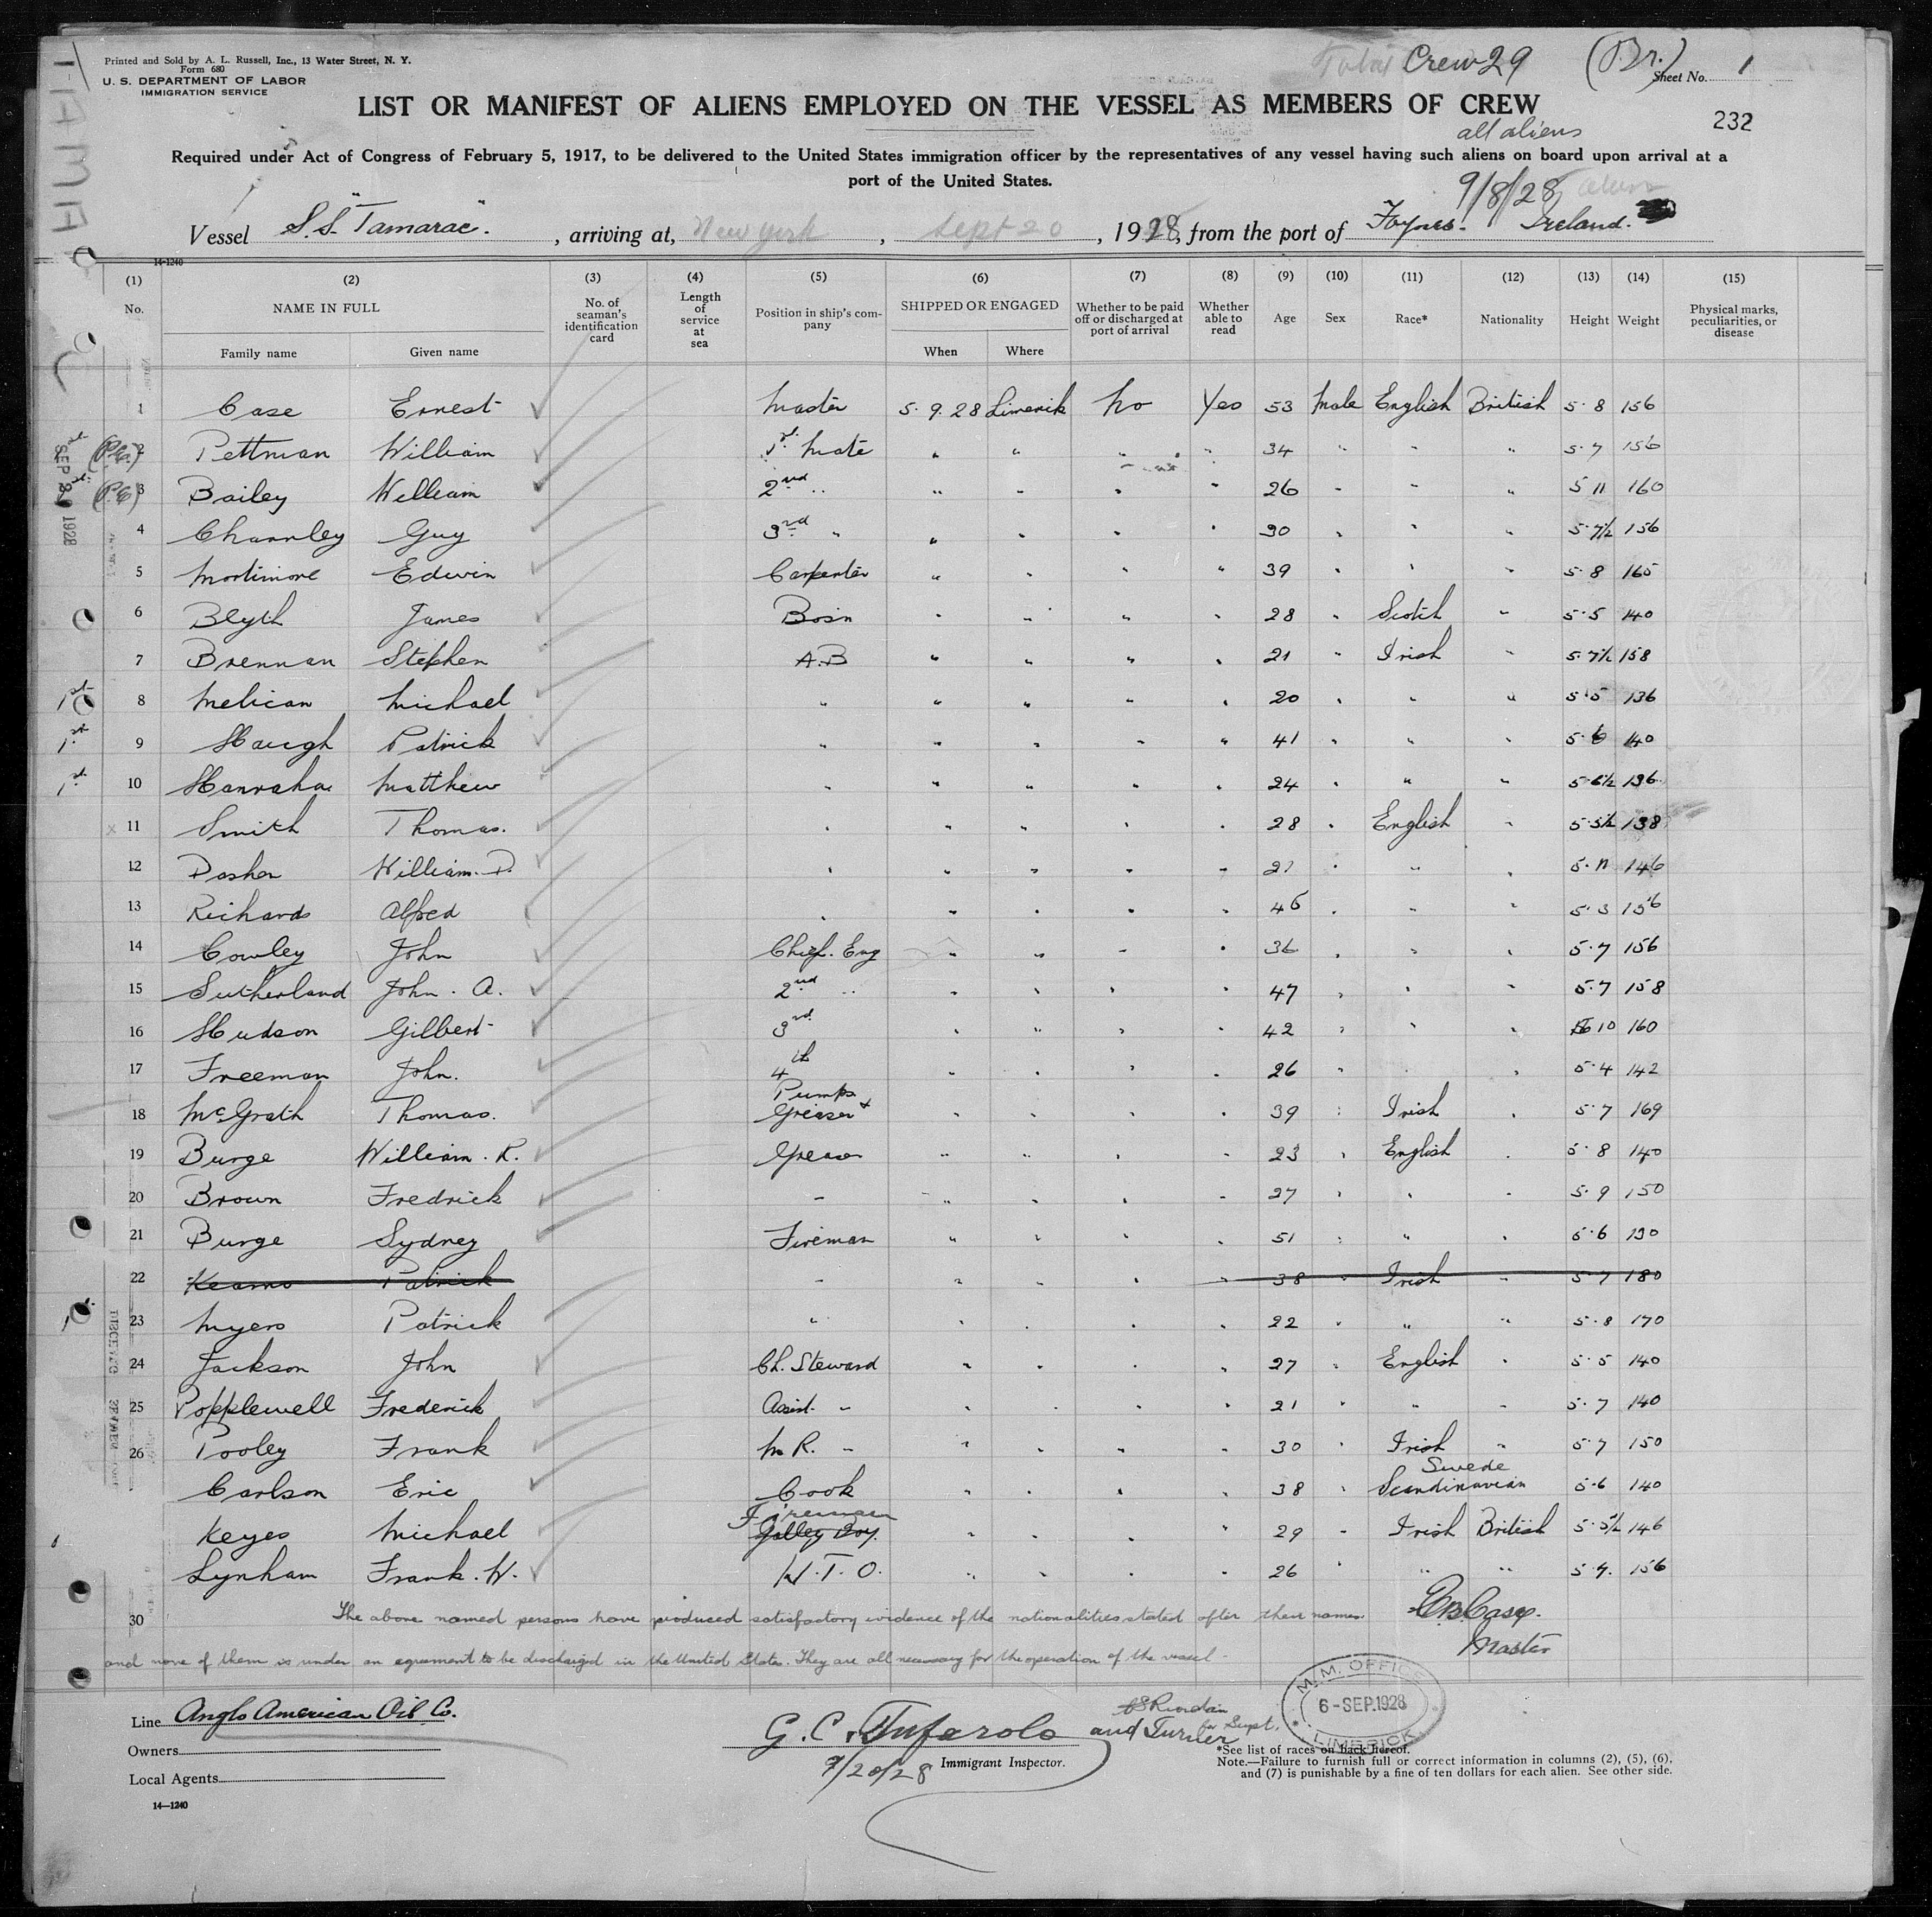 Printed and Sold by A. L. Russell, Inc., 13 Water Street, N. Y.
Form 680
U. S. DEPARTMENT OF LABOR
IMMIGRATION SERVICE
Total Crew 29 (Br.) Sheet No. 1
LIST OR MANIFEST OF ALIENS EMPLOYED ON THE VESSEL AS MEMBERS OF CREW
all aliens
232
Required under Act of Congress of February 5, 1917, to be delivered to the United States immigration officer by the representatives of any vessel having such aliens on board upon arrival at a
port of the United States.
9/8/28
Vessel S.S. "Tamarac". , arriving at, New York , Sept 20 , 1928, from the port of Foynes. Ireland.
14-1240
(1) (2) (3) (4) (5) (6) (7) (8) (9) (10) (11) (12) (13) (14) (15)
No. NAME IN FULL No. of seaman's identification card Length of service at sea Position in ship's company SHIPPED OR ENGAGED Whether to be paid off or discharged at port of arrival Whether able to read Age Sex Race* Nationality Height Weight Physical marks, peculiarities, or disease
Family name Given name When Where
1 Case Ernest Master 5.9.28 Limerick No Yes 53 Male English British 5.8 156
(P.E.) 2 Pettman William 1st Mate " " " " 34 " " " 5.7 156
(P.E.) 3 Bailey William 2nd " " " " " 26 " " " 5 11 160
SEP 20 1928
4 Charnley Guy 3rd " " " " " 30 " " " 5.7½ 156
5 Mortimore Edwin Carpenter " " " " 39 " " " 5.8 165
6 Blyth James Bosn " " " " 28 " Scotch " 5.5 140
7 Brennan Stephen A.B " " " " 21 " Irish " 5.7½ 158
1st 8 Melican Michael " " " " " 20 " " " 5.5 136
1st 9 Haugh Patrick " " " " " 41 " " " 5.6 140
1st 10 Hanraha Matthew " " " " " 24 " " " 5.6½ 136
x 11 Smith Thomas. " " " " " 28 " English " 5.5½ 138
12 Dasher William. D. " " " " " 21 " " " 5.11 146
13 Richards Alfred " " " " " 46 " " " 5.3 136
14 Cowley John Chief. Eng " " " " 36 " " " 5.7 156
15 Sutherland John. A. 2nd " " " " " 47 " " " 5.7 158
16 Hudson Gilbert 3rd " " " " 42 " " " 10 160
17 Freeman John. 4th " " " " 26 " " " 5.4 142
18 McGrath Thomas. Pumps Greaser + " " " " 39 " Irish " 5.7 169
19 Burge William. R. Greaser " " " " 23 " English " 5.8 140
20 Brown Fredrick " " " " " 27 " " " 5.9 150
21 Burge Sydney Fireman " " " " 51 " " " 5.6 130
22 Kearns Patrick " " " " " 38 " Irish " 5.7 180
23 Myers Patrick " " " " " 22 " " " 5.8 170
24 Jackson John Ch. Steward " " " " 27 " English " 5.5 140
25 Popplewell Frederick Assist. " " " " " 21 " " " 5.7 140
26 Pooley Frank M R. " " " " " 30 " Irish " 5.7 150
Carlson Eric Cook " " " " 38 " Swede Scandinavian 5.6 140
Keyes Michael Fireman Galley Boy. " " " " 29 " Irish British 5.5½ 146
Lynham Frank. W. W.T.O. " " " " 26 " " " 5.7. 156
30 The above named persons have produced satisfactory evidence of the nationalities stated after their names
and none of them is under an agreement to be discharged in the United States. They are all necessary for the operation of the vessel.
Master
Line Anglo American Oil Co.
Owners
Local Agents
14—1240
G. C. Tufarolo and Turner
9/20/28 Immigrant Inspector.
for Supt.
M. M. OFFICE
6-SEP.1928
LIMERICK
*See list of races on back hereof.
Note.—Failure to furnish full or correct information in columns (2), (5), (6),
and (7) is punishable by a fine of ten dollars for each alien. See other side.